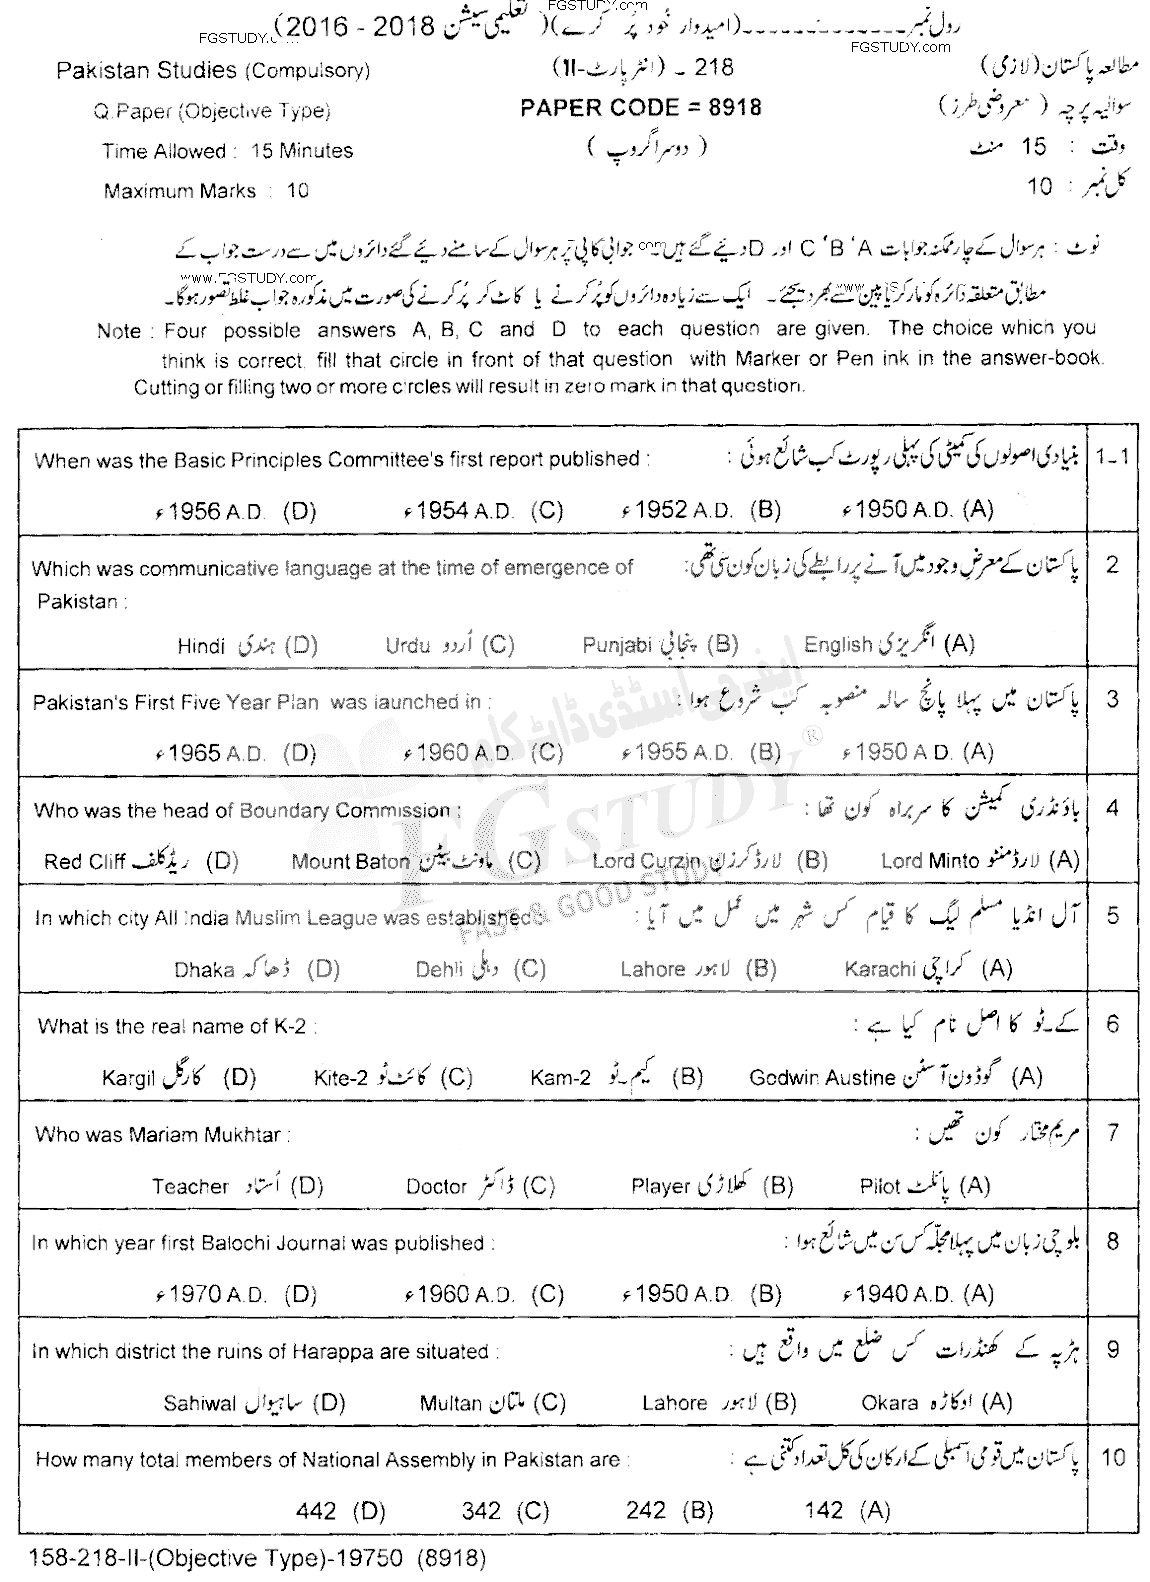 رول نمبر ـ ـ ـ ـ ـ ـ ـ ـ ـ ـ ـ ـ ـ ـ (امیدوار خود پُر کرے)( تعلیمی سیشن 2018 - 2016)
FGSTUDY.com
FGSTUDY.com
FGSTUDY.com
Pakistan Studies (Compulsory) (انٹر پارٹ-II) ـ 218 مطالعہ پاکستان(لازمی)
Q.Paper (Objective Type) PAPER CODE = 8918 سوالیہ پرچہ ( معروضی طرز)
Time Allowed : 15 Minutes (دوسرا گروپ) وقت : 15 منٹ
Maximum Marks : 10 کل نمبر : 10
نوٹ : ہر سوال کے چار ممکنہ جوابات A، B، C اور D دیئے گئے ہیں com جوابی کاپی پر ہر سوال کے سامنے دیئے گئے دائروں میں سے درست جواب کے
www.FGSTUDY.com
مطابق متعلقہ دائرہ کو مارکر یا پین سے بھر دیجئے۔ ایک سے زیادہ دائروں کو پُر کرنے یا کاٹ کر پُر کرنے کی صورت میں مذکورہ جواب غلط تصور ہوگا۔
Note : Four possible answers A, B, C and D to each question are given. The choice which you
think is correct, fill that circle in front of that question with Marker or Pen ink in the answer-book.
Cutting or filling two or more circles will result in zero mark in that question.
When was the Basic Principles Committee's first report published : بنیادی اصولوں کی کمیٹی کی پہلی رپورٹ کب شائع ہوئی : 1-1
ء1956 A.D. (D) ء1954 A.D. (C) ء1952 A.D. (B) ء1950 A.D. (A)
Which was communicative language at the time of emergence of پاکستان کے معرضِ وجود میں آنے پر رابطے کی زبان کون سی تھی: 2
Pakistan :
Hindi ہندی (D) Urdu اُردو (C) Punjabi پنجابی (B) English انگریزی (A)
Pakistan's First Five Year Plan was launched in : پاکستان میں پہلا پانچ سالہ منصوبہ کب شروع ہوا : 3
ء1965 A.D. (D) ء1960 A.D. (C) ء1955 A.D. (B) ء1950 A.D. (A)
Who was the head of Boundary Commission : باؤنڈری کمیشن کا سربراہ کون تھا : 4
Red Cliff ریڈکلف (D) Mount Baton ماونٹ بیٹن (C) Lord Curzin لارڈ کرزن (B) Lord Minto لارڈ منٹو (A)
In which city All India Muslim League was established : آل انڈیا مسلم لیگ کا قیام کس شہر میں عمل میں آیا : 5
Dhaka ڈھاکہ (D) Dehli دہلی (C) Lahore لاہور (B) Karachi کراچی (A)
What is the real name of K-2 : کے ـ ٹو کا اصل نام کیا ہے : 6
Kargil کارگل (D) Kite-2 کائٹ ٹو (C) Kam-2 کیم ـ ٹو (B) Godwin Austine گوڈون آسٹن (A)
Who was Mariam Mukhtar : مریم مختار کون تھیں : 7
Teacher اُستاد (D) Doctor ڈاکٹر (C) Player کھلاڑی (B) Pilot پائلٹ (A)
In which year first Balochi Journal was published : بلوچی زبان میں پہلا مجلّہ کس سن میں شائع ہوا : 8
ء1970 A.D. (D) ء1960 A.D. (C) ء1950 A.D. (B) ء1940 A.D. (A)
In which district the ruins of Harappa are situated : ہڑپہ کے کھنڈرات کس ضلع میں واقع ہیں : 9
Sahiwal ساہیوال (D) Multan ملتان (C) Lahore لاہور (B) Okara اوکاڑہ (A)
How many total members of National Assembly in Pakistan are : پاکستان میں قومی اسمبلی کے ارکان کی کل تعداد کتنی ہے : 10
442 (D) 342 (C) 242 (B) 142 (A)
158-218-II-(Objective Type)-19750 (8918)
ایف جی اسٹڈی ڈاٹ کام
FGSTUDY®
FAST & GOOD STUDY